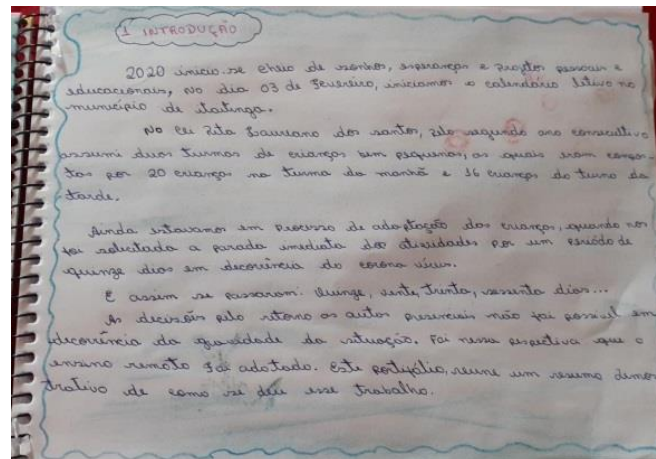 1 INTRODUÇÃO
2020 inicio-se cheio de sonhos, esperanças e projetos pessoais e
educacionais, no dia 03 de fevereiro, iniciamos o calendário letivo no
município de Itatinga.
No CEI Zita Lauriano dos Santos, pelo segundo ano consecutivo
assumi duas turmas de crianças bem pequenas, as quais eram compos-
tas por 20 crianças na turma da manhã e 16 crianças do turno da
tarde.
Ainda estavamos em processo de adaptação das crianças, quando nos
foi solicitada a parada imediata das atividades por um periódo de
quinze dias em decorrência do corona vírus.
E assim se passaram: Quinze, vinte, trinta, sessenta dias...
As decisões pelo retorno as aulas presenciais não foi possível em
decorrência da gravidade da situação. Foi nessa perspectiva que o
ensino remoto foi adotado. Este portifólio, reune um resumo demos
trativo de como se deu esse trabalho.